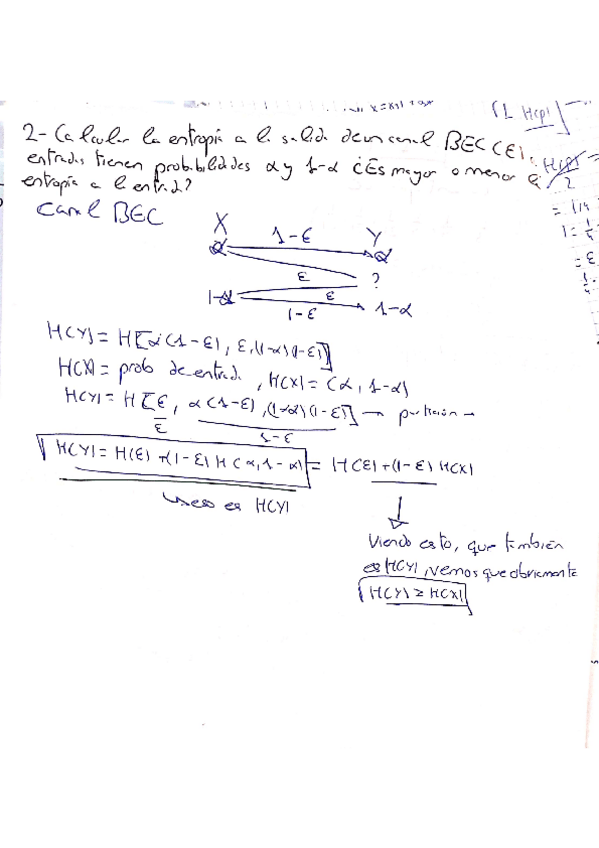 (1 H(p)
2- Calcular la entropía a la salida de un canal BEC(ε),
entradas tienen probabilidades α y 1-α ¿Es mayor o menor a
entropía a l entrad?
Canal BEC
X
Y
α 1-ε α
ε ?
1-α ε
1-ε 1-α
H(Y)= H[α(1-ε), ε,(1-α)(1-ε)]
H(X)= prob de entrad , H(X)= (α, 1-α)
H(Y)= H[ε, α(1-ε),(1-α)(1-ε)] → partición →
ε
1-ε
H(Y)= H(ε)+(1-ε)H(α,1-α) = H(ε)+(1-ε) H(X)
es H(Y)
Viendo esto, que también
es H(Y), vemos que obviamente
H(Y) ≥ H(X)